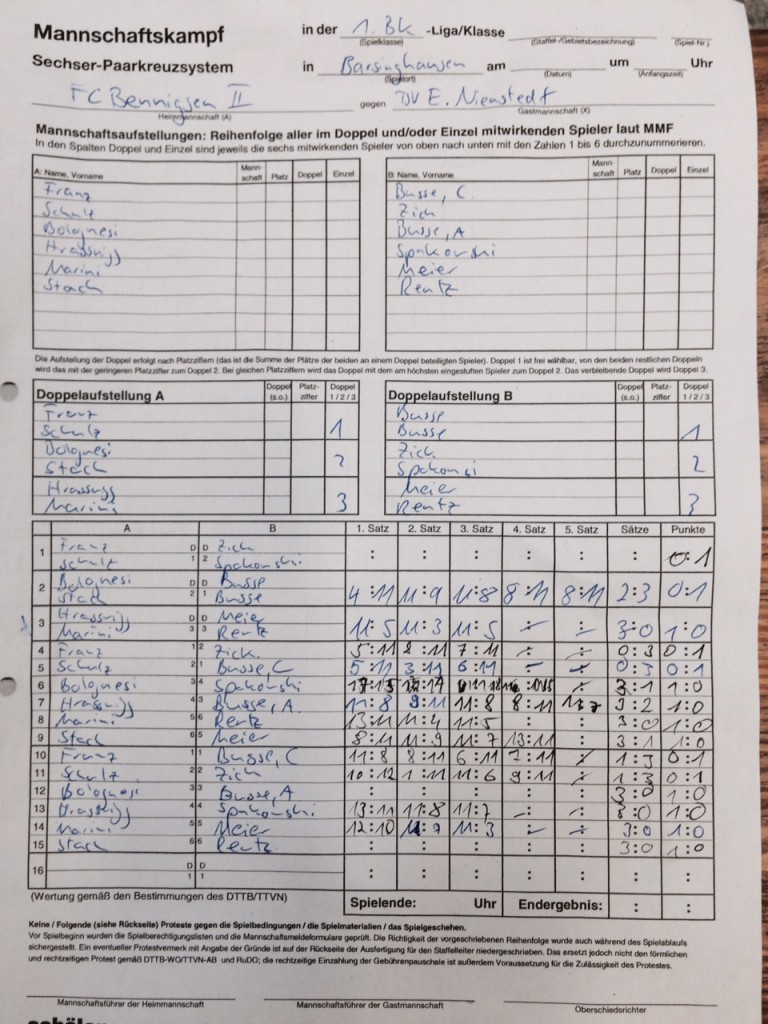 Mannschaftskampf in der 1. BK -Liga/Klasse
(Spielklasse) (Staffel-/Gebietsbezeichnung) (Spiel-Nr.)
Sechser-Paarkreuzsystem in Barsinghausen am um Uhr
(Spielort) (Datum) (Anfangszeit)
FC Bennigsen II gegen TSV E. Nienstedt
Heimmannschaft (A) Gastmannschaft (X)
Mannschaftsaufstellungen: Reihenfolge aller im Doppel und/oder Einzel mitwirkenden Spieler laut MMF
In den Spalten Doppel und Einzel sind jeweils die sechs mitwirkenden Spieler von oben nach unten mit den Zahlen 1 bis 6 durchzunummerieren.
A: Name, Vorname Mann-schaft Platz Doppel Einzel B: Name, Vorname Mann-schaft Platz Doppel Einzel
Franz Busse, C.
Schulz Zick
Bolognesi Busse, A
Hrassnigg Spakowski
Marini Meier
Stach Rentz
Die Aufstellung der Doppel erfolgt nach Platzziffern (das ist die Summe der Plätze der beiden an einem Doppel beteiligten Spieler). Doppel 1 ist frei wählbar, von den beiden restlichen Doppeln
wird das mit der geringeren Platzziffer zum Doppel 2. Bei gleichen Platzziffern wird das Doppel mit dem am höchsten eingestuften Spieler zum Doppel 2. Das verbleibende Doppel wird Doppel 3.
Doppelaufstellung A Doppel (s.o.) Platz-ziffer Doppel 1/2/3 Doppelaufstellung B Doppel (s.o.) Platz-ziffer Doppel 1/2/3
Franz Busse
Schulz 1 Busse 1
Bolognesi Zick
Stach 2 Spakowsi 2
Hrassnigg Meier
Marini 3 Rentz 3
A B 1. Satz 2. Satz 3. Satz 4. Satz 5. Satz Sätze Punkte
1 Franz D D Zick : : : : : : 0:1
Schulz 1 2 Spakowski
2 Bolognesi D D Busse 4:11 11:9 11:8 8:11 8:11 2:3 0:1
Stach 2 1 Busse
3 Hrassnigg D D Meier 11:5 11:3 11:5 : : 3:0 1:0
Marini 3 3 Rentz
4 Franz 1 2 Zick 5:11 8:11 7:11 : : 0:3 0:1
5 Schulz 2 1 Busse, C 5:11 3:11 6:11 : : 0:3 0:1
6 Bolognesi 3 4 Spakowski : 3:1 1:0
7 Hrassnigg 4 3 Busse, A. 11:8 9:11 11:8 8:11 3:2 1:0
8 Marini 5 6 Rentz 13:11 11:4 11:5 : : 3:0 1:0
9 Stach 6 5 Meier 8:11 11:9 11:7 13:11 : 3:1 1:0
10 Franz 1 1 Busse, C 11:8 8:11 6:11 7:11 : 1:3 0:1
11 Schulz 2 2 Zick 10:12 1:11 11:6 9:11 : 1:3 0:1
12 Bolognesi 3 3 Busse, A : : : : : 3:0 1:0
13 Hrassnigg 4 4 Spakowski 13:11 11:8 11:7 : : 3:0 1:0
14 Marini 5 5 Meier 12:10 11:3 : : 3:0 1:0
15 Stach 6 6 Rentz : : : : : 3:0 1:0
16 D D : : : : : : :
1 1
(Wertung gemäß den Bestimmungen des DTTB/TTVN) Spielende: Uhr Endergebnis: : :
Keine / Folgende (siehe Rückseite) Proteste gegen die Spielbedingungen / die Spielmaterialien / das Spielgeschehen.
Vor Spielbeginn wurden die Spielberechtigungslisten und die Mannschaftsmeldeformulare geprüft. Die Richtigkeit der vorgeschriebenen Reihenfolge wurde auch während des Spielablaufs
sichergestellt. Ein eventueller Protestvermerk mit Angabe der Gründe ist auf der Rückseite der Ausfertigung für den Staffelleiter niedergeschrieben. Das ersetzt jedoch nicht den förmlichen
und rechtzeitigen Protest gemäß DTTB-WO/TTVN-AB und RuDO; die rechtzeitige Einzahlung der Gebührenpauschale ist außerdem Voraussetzung für die Zulässigkeit des Protestes.
Mannschaftsführer der Heimmannschaft Mannschaftsführer der Gastmannschaft Oberschiedsrichter